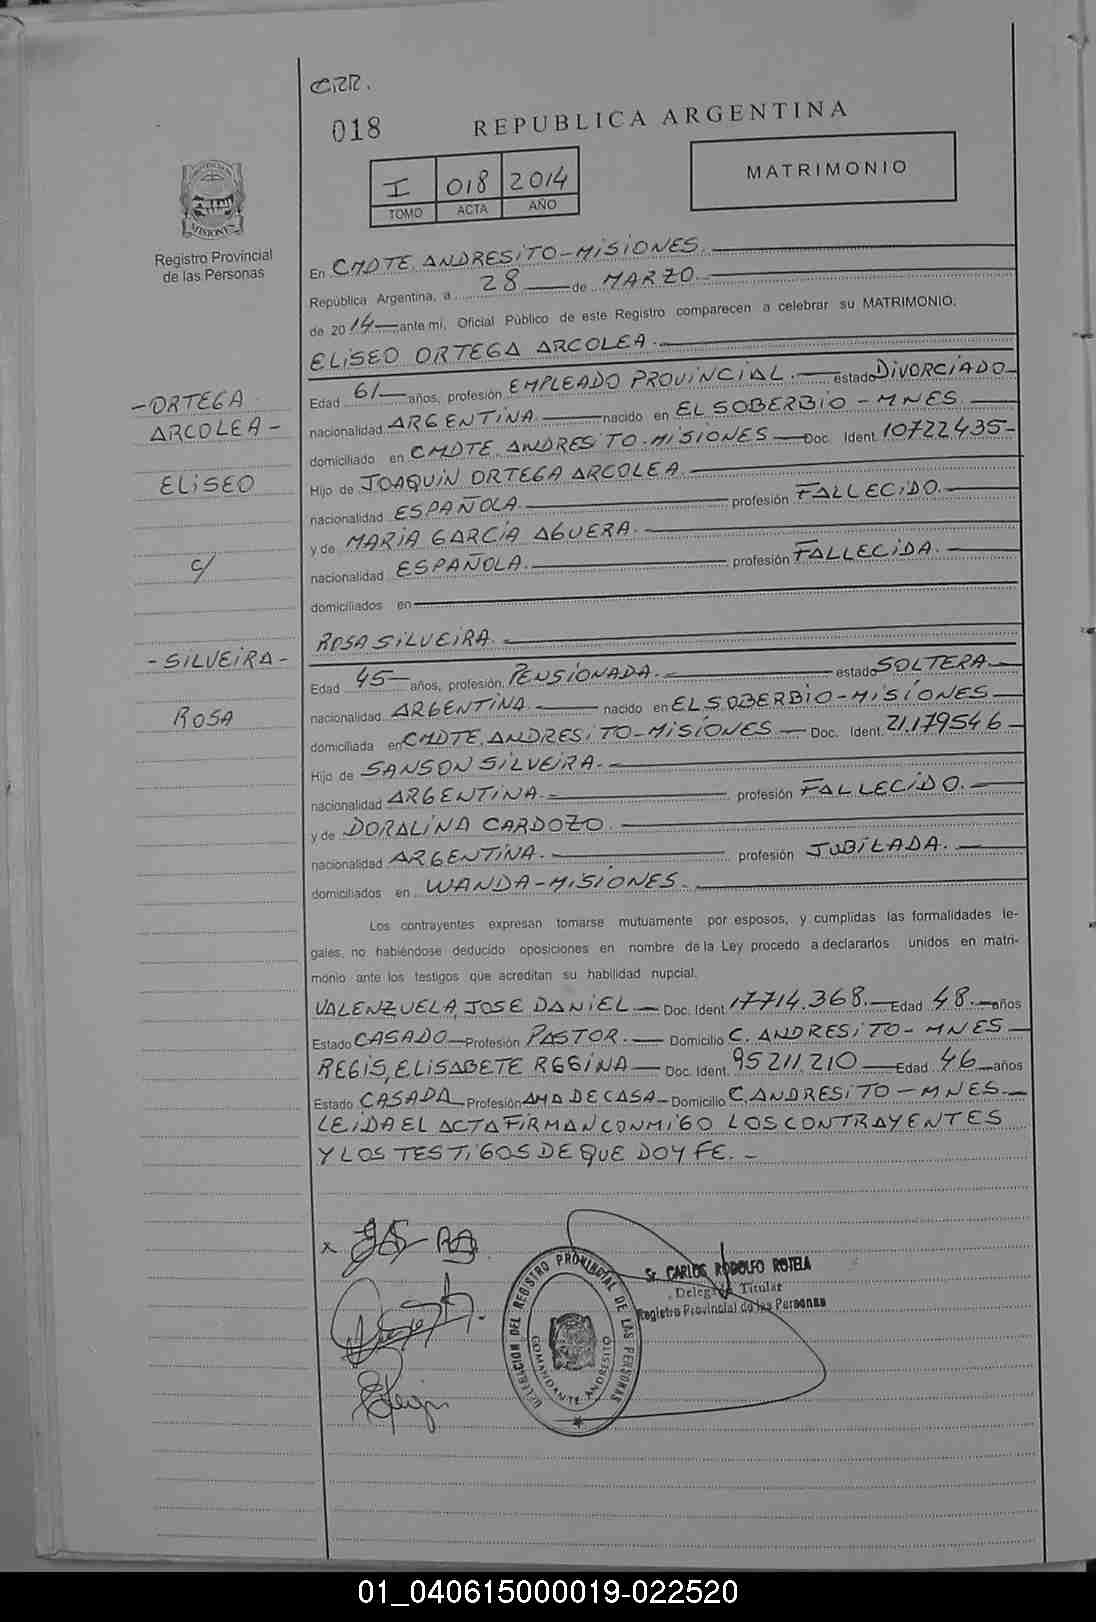 CRR.
018
REPUBLICA ARGENTINA
I 018 2014
TOMO ACTA AÑO
MATRIMONIO
PROVINCIA DE
MISIONES
Registro Provincial
de las Personas
En CMDTE. ANDRESITO-MISIONES.
República Argentina, a 28 de MARZO.
de 2014 ante mí, Oficial Público de este Registro comparecen a celebrar su MATRIMONIO.
ELISEO ORTEGA ARCOLEA.
Edad 61 años, profesión EMPLEADO PROVINCIAL. estado DIVORCIADO
nacionalidad ARGENTINA nacido en EL SOBERBIO - MNES.
domiciliado en CMDTE. ANDRESITO-MISIONES Doc. Ident. 10722435-
Hijo de JOAQUIN ORTEGA ARCOLEA.
nacionalidad ESPAÑOLA. profesión FALLECIDO.
y de MARIA GARCÍA AGUERA.
nacionalidad ESPAÑOLA. profesión FALLECIDA.
domiciliados en
ROSA SILVEIRA.
Edad 45 años, profesión PENSIONADA. estado SOLTERA
nacionalidad ARGENTINA. nacido en EL SOBERBIO-MISIONES
domiciliada en CMDTE. ANDRESITO-MISIONES Doc. Ident. 21.179546
Hijo de SANSON SILVEIRA.
nacionalidad ARGENTINA. profesión FALLECIDO.
y de DORALINA CARDOZO.
nacionalidad ARGENTINA. profesión JUBILADA.
domiciliados en WANDA-MISIONES.
Los contrayentes expresan tomarse mutuamente por esposos, y cumplidas las formalidades le-
gales, no habiéndose deducido oposiciones en nombre de la Ley procedo a declararlos unidos en matri-
monio ante los testigos que acreditan su habilidad nupcial.
VALENZUELA, JOSE DANIEL Doc. Ident. 17714.368. Edad 48. años
Estado CASADO Profesión PASTOR. Domicilio C. ANDRESITO- MNES
REGIS, ELISABETE REGINA Doc. Ident. 95211210 Edad 46 años
Estado CASADA Profesión AMA DE CASA Domicilio C. ANDRESITO - MNES.
LEIDA EL ACTA FIRMAN CONMIGO LOS CONTRAYENTES
Y LOS TESTIGOS DE QUE DOY FE. -
-ORTEGA
ARCOLEA-
ELISEO
c/
-SILVEIRA-
ROSA
x
DELEGACION DEL REGISTRO PROVINCIAL DE LAS PERSONAS
COMANDANTE ANDRESITO
Sr. CARLOS RODOLFO ROTELA
Delegado Titular
Registro Provincial de las Personas
01_040615000019-022520